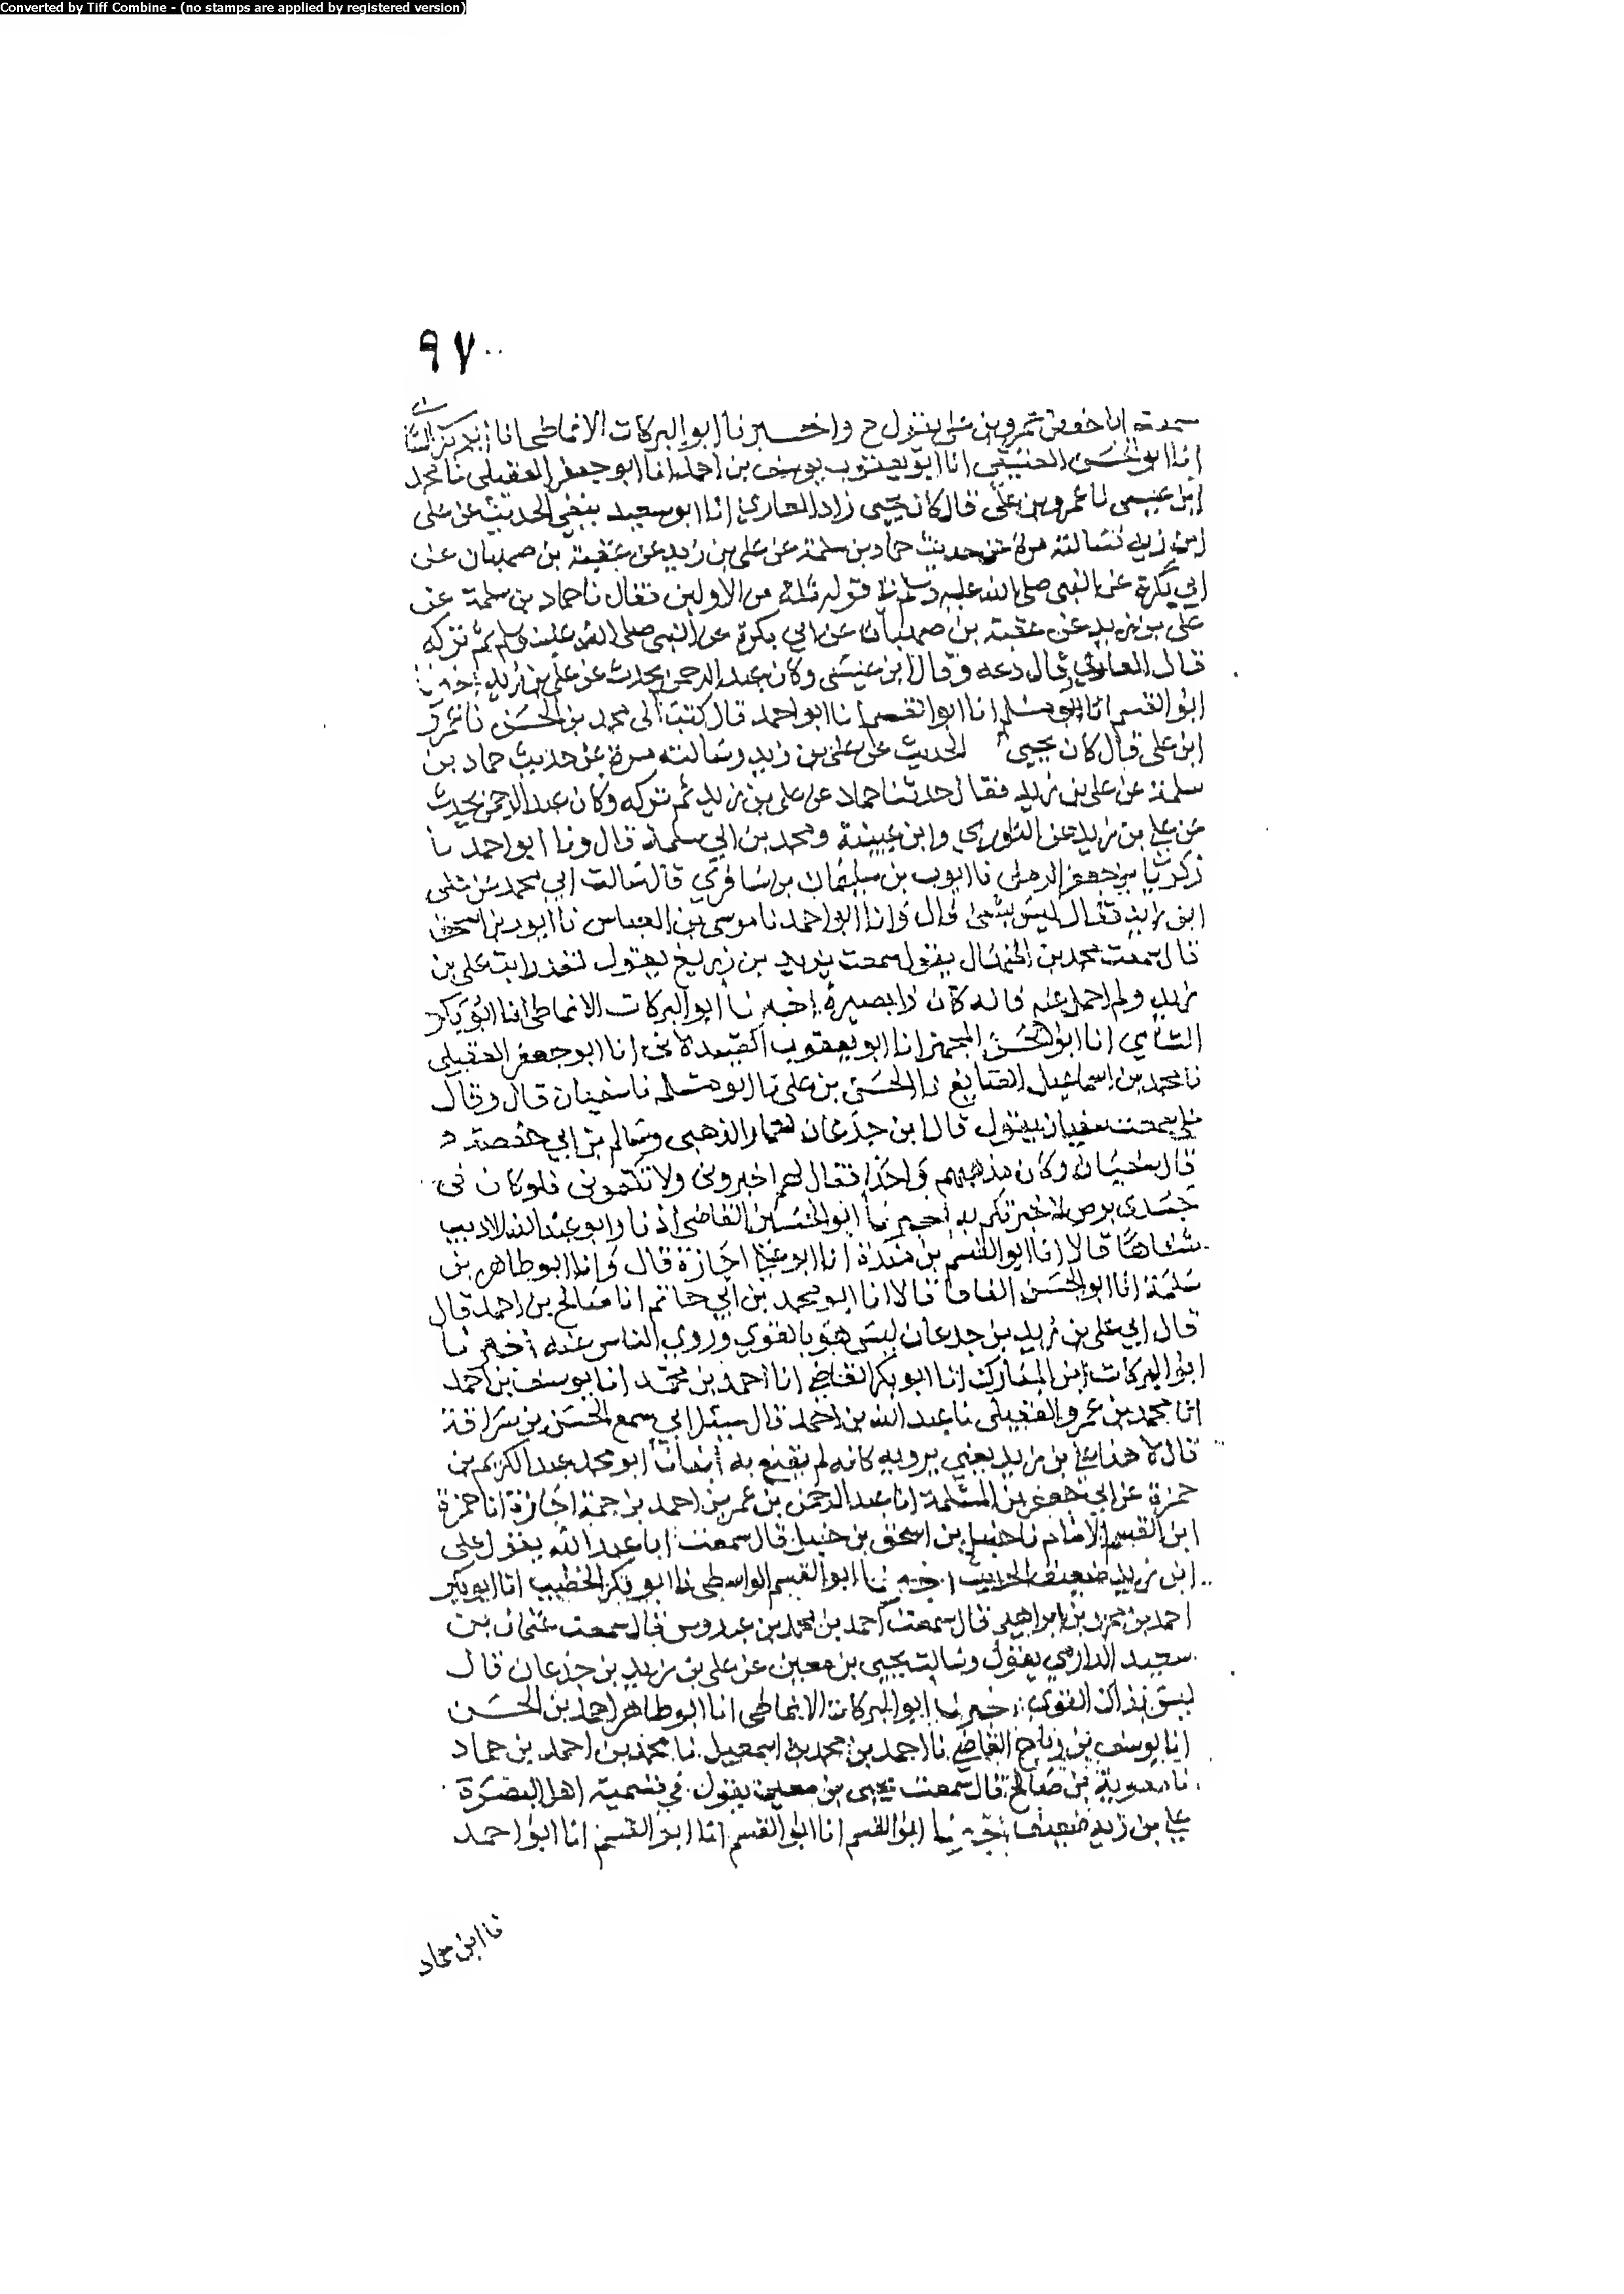 Converted by Tiff Combine - (no stamps are applied by registered version)
٩٧
سمعت ابا حفص عمرو بن علي يقول ح واخبرنا ابو البركات الانماطي انا ابو بكر الشامي
انا ابو الحسن العتيقي انا ابو يعقوب يوسف بن احمد انا ابو جعفر العقيلي نا محمد
ابن عيسى نا عمرو بن علي قال كان يحيى زاد انا ابو سعيد يتقي الحديث عن علي
ابن زيد فسالته مرة عن حديث حماد بن سلمة عن علي بن زيد عن عقبة بن صهبان عن
ابي بكرة عن النبي صلى الله عليه وسلم في قوله ثلة من الاولين فقال نا حماد بن سلمة عن
علي بن زيد عن عقبة بن صهبان عن ابي بكرة عن النبي صلى الله عليه وسلم ثم تركه
قال قال دعه وقال ابن عيسى وكان عبد الرحمن يحدث عن علي بن زيد اخبرنا
ابو القسم انا ابو القسم انا ابو احمد قال كتب الي محمد بن الحسن نا عمرو
ابن علي قال كان يحيى الحديث عن علي بن زيد وسالته مرة عن حديث حماد بن
سلمة عن علي بن زيد فقال حدثنا حماد عن علي بن زيد ثم تركه وكان عبد الرحمن يحدث
عن علي بن زيد عن الثوري وابن عيينة ومحمد بن ابي سلمة قال ونا ابو احمد نا
زكريا بن جعفر الرملي نا ايوب بن سليمان بن سافري قال سالت ابي محمد عن علي
ابن زيد فقال ليس بشي قال وانا ابو احمد نا موسى بن العباس نا ابو بن اسحق
قال سمعت محمد بن المنهال يقول سمعت يزيد بن زريع يقول لقد رايت علي بن
زيد ولم احمل عنه فانه كان رابصيرة اخبرنا ابو البركات الانماطي انا ابو بكر
الشامي انا ابو الحسن المجهز انا ابو يعقوب الصيدلاني انا ابو جعفر العقيلي
نا محمد بن اسماعيل الصايغ نا الحسن بن علي نا ابو مسلم نا سفيان قال وقال
علي سمعت سفيان يقول قال ابن جدعان لعمار الذهبي وسالم بن ابي حفصة
قال سفيان وكان مذهبهم واحدا فقال لهم اخبروني ولا تكتموني فلو كان في
جسدي برص لاخبرتكم به اخبرنا ابو الحسين القاضي اذنا وابو عبد الله الاديب
شفاها قالا انا ابو القسم بن مندة انا ابو علي اجازة قال وانا ابو طاهر بن
سلمة انا ابو الحسن الفافا قالا انا ابو محمد بن ابي حاتم انا صالح بن احمد قال
قال ابي علي بن زيد بن جدعان ليس هو بالقوي وروى الناس عنه اخبرنا
ابو البركات ابن المبارك انا ابو بكر القاضي انا احمد بن محمد انا يوسف بن احمد
انا محمد بن عمرو العقيلي نا عبد الله بن احمد قال سئل ابي سمع الحسن من سراقة
قال لا هذا علي بن زيد يعني يرويه كانه لم يقنع به انبانا ابو محمد عبد الكريم بن
حمزة عن ابي جعفر بن المسلمة انا عبد الرحمن بن عمر بن احمد بن حمة اجازة انا حمزة
ابن القسم الامام نا حنبل بن اسحق بن حنبل قال سمعت ابا عبد الله يقول علي
ابن زيد ضعيف الحديث اخبرنا ابو القسم الواسطي نا ابو بكر الخطيب انا ابو بكر
احمد بن محمد بن ابراهيم قال سمعت احمد بن محمد بن عبدوس قال سمعت عثمان بن
سعيد الدارمي يقول وسالت يحيى بن معين عن علي بن زيد بن جدعان قال
ليس بذاك القوي اخبرنا ابو البركات الانماطي انا ابو طاهر احمد بن الحسن
انا يوسف بن رباح القاضي نا احمد بن محمد بن اسمعيل نا محمد بن احمد بن حماد
نا معوية بن صالح قال سمعت يحيى بن معين يقول في تسمية اهل البصرة
علي بن زيد ضعيف اخبرنا ابو القسم انا ابو القسم انا ابو القسم انا ابو احمد
نا ابن حماد